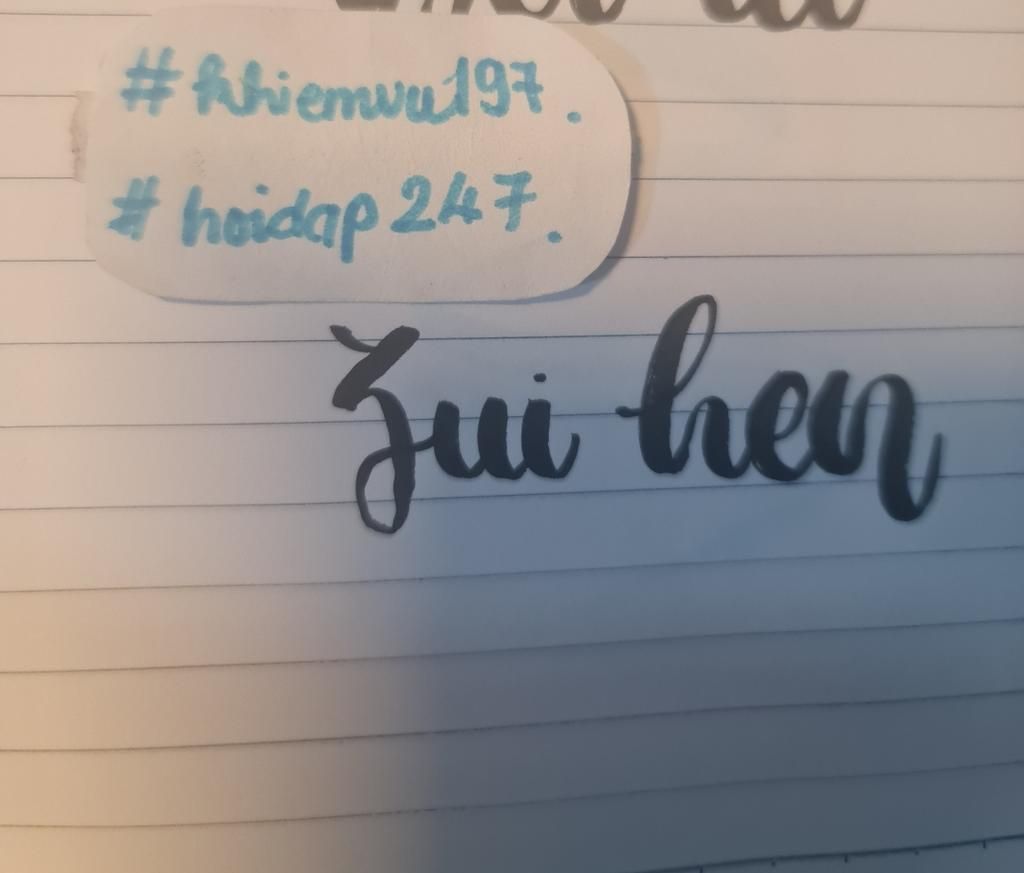 #khiemvu197.
#hoidap247.
Zui hen